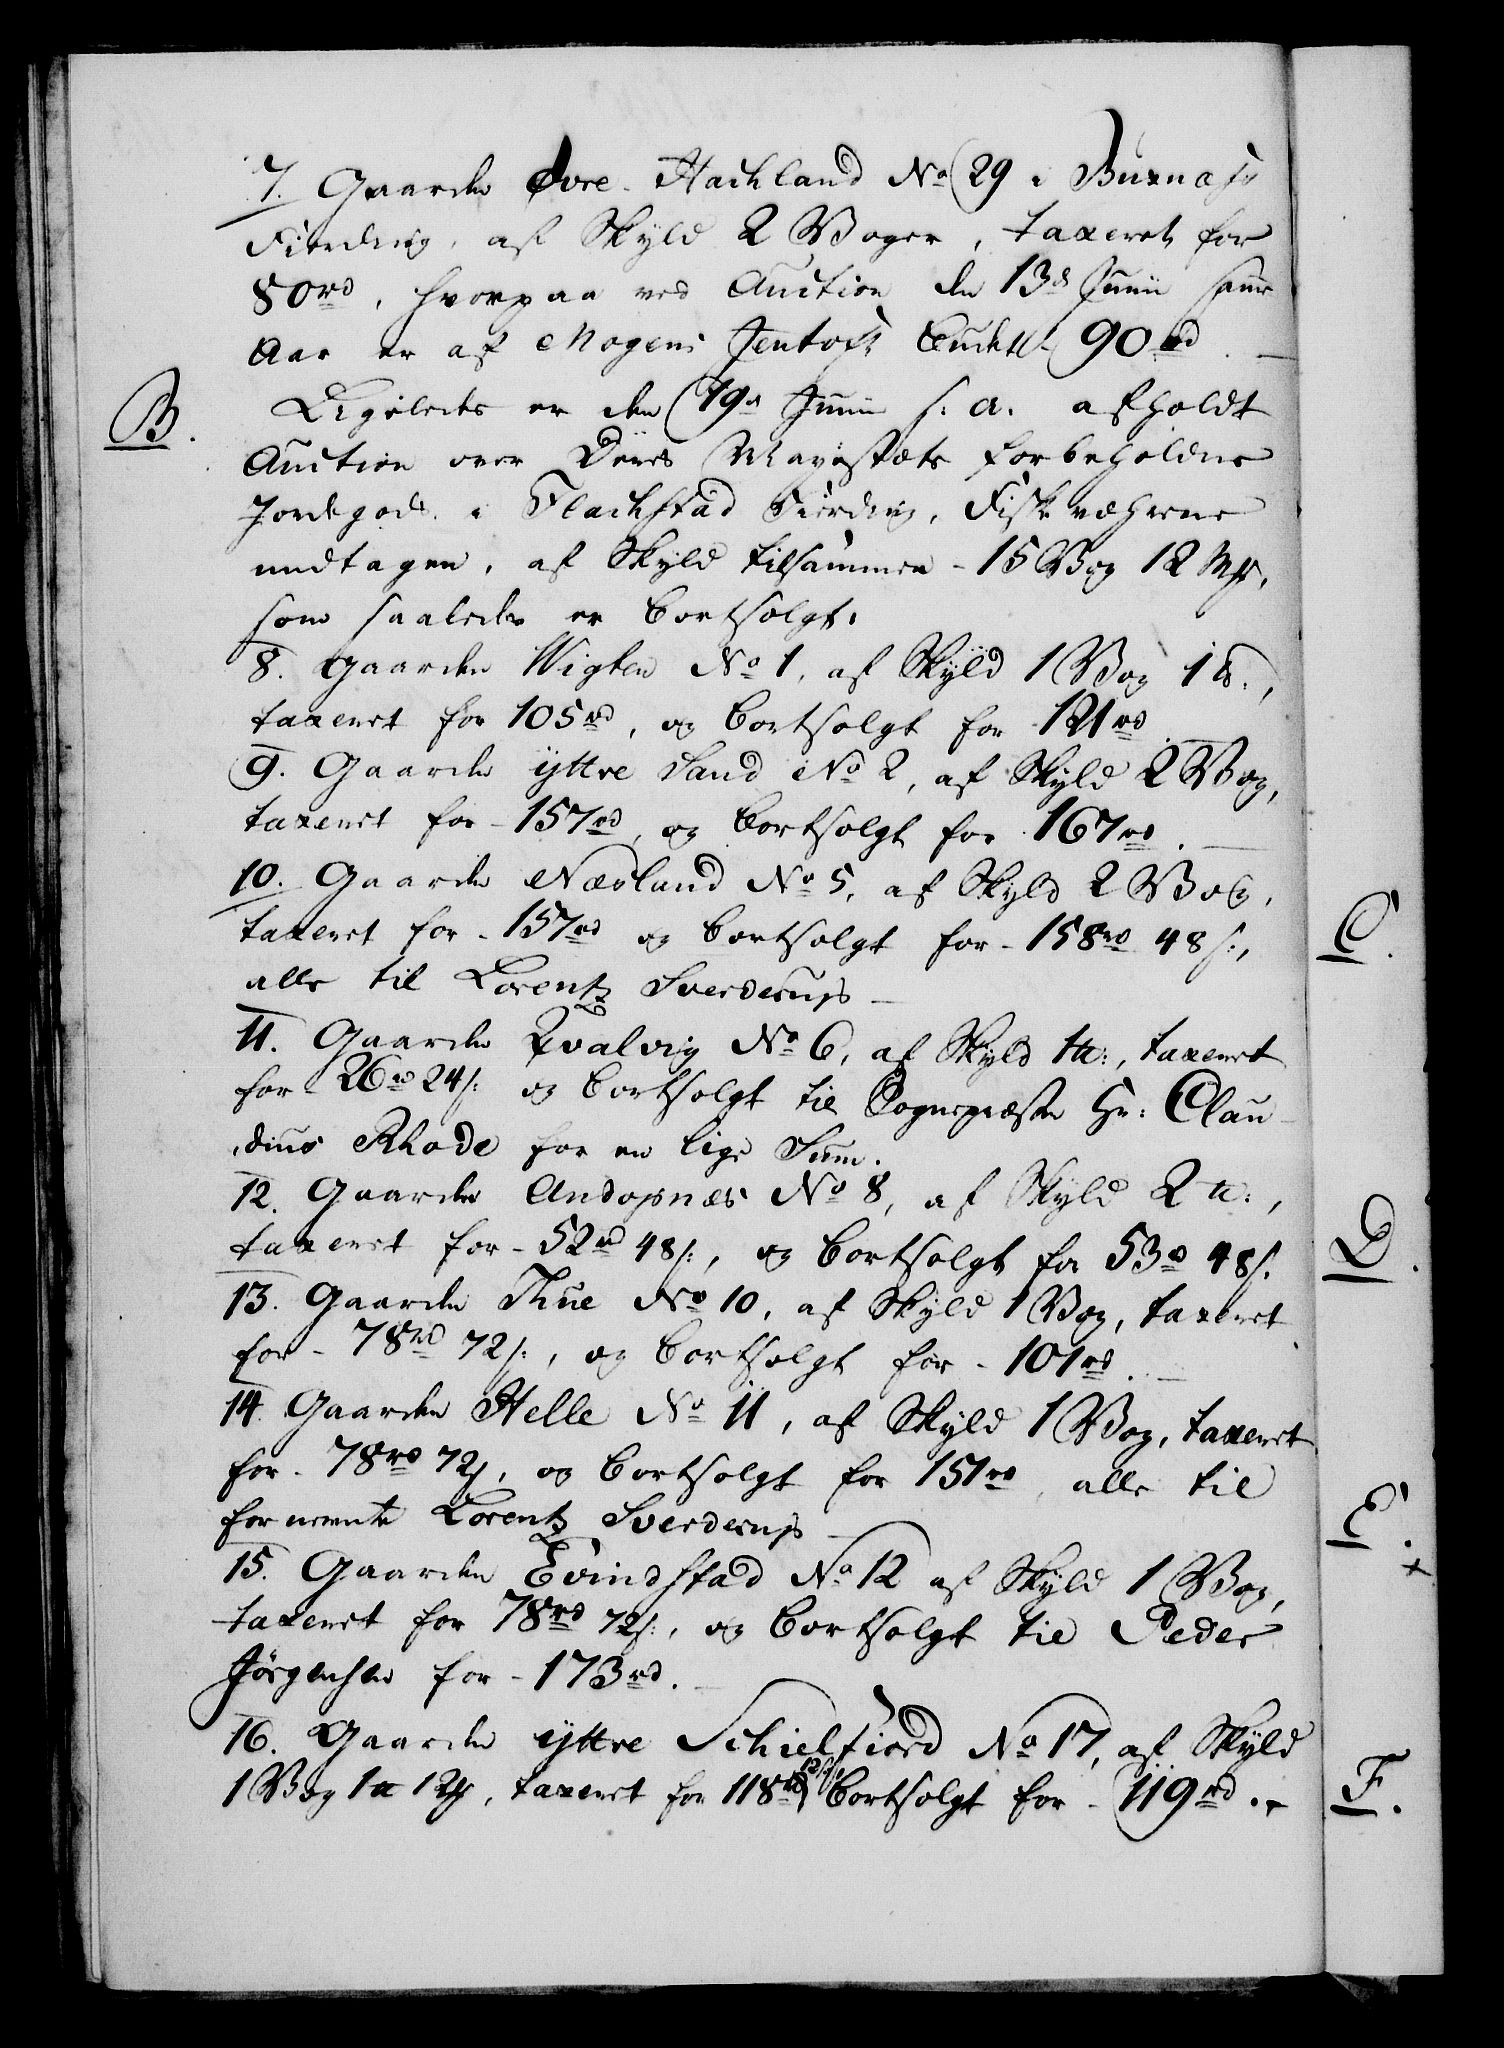 7. Gaarden Øvre Hachland No 29 i Buxnæs
Fierding, af Skyld 2 Voger, taxeret for
80rd, hvorpaa ved Auction den 13de Junii samme
Aar er af Mogens Jentoft budet 90rd.
B. Ligeledes er den 19de Junii s: a. afholdt
Auction over Deres Mayestæts forbeholdne
Jordegods i Flachstad Fierding, Fiskeværene
undtagen, af Skyld tilsammen - 15 Vog 12 Mk,
som saaledes er bortsolgt.
8. Gaarden Wigten No 1, af Skyld 1 Vog 1 ℔.,
taxeret for 105rd, og bortsolgt for 121rd
9. Gaarden yttre Sand No 2, af Skyld 2 Vog,
taxeret for - 157rd, og bortsolgt for 167rd.
10. Gaarden Næsland No 5, af Skyld 2 Vog,
taxeret for - 157rd og bortsolgt for - 158rd 48 s:,
alle til Lorentz Sverdrup
11. Gaarden Qvalvig No 6, af Skyld 1 ℔:, taxeret
for - 26rd 24 s: og bortsolgt til Sognepræsten Hr: Clau-
dius Rhode for en lige Sum.
12. Gaarden Andopnæs No 8, af Skyld 2 ℔:,
taxeret for - 52rd 48 s:, og bortsolgt for 53rd 48 s.
13. Gaarden Thue No 10, af Skyld 1 Vog, taxeret
for - 78rd 72 s:, og bortsolgt for - 101rd.
14. Gaarden Helle No 11, af Skyld 1 Vog, taxeret
for - 78rd 72 s, og bortsolgt for 151rd, alle til
fornevnte Lorentz Sverdrup
15. Gaarden Evindstad No 12 af Skyld 1 Vog,
taxeret for 78rd 72 s:, og bortsolgt til Peder
Jörgensen for - 173rd.
16. Gaarden yttre Schielfiord No 17, af Skyld
1 Vog 1 ℔ 12 Mk, taxeret for 118rd 12 s, bortsolgt for - 119rd.
C.
D.
E.
F.